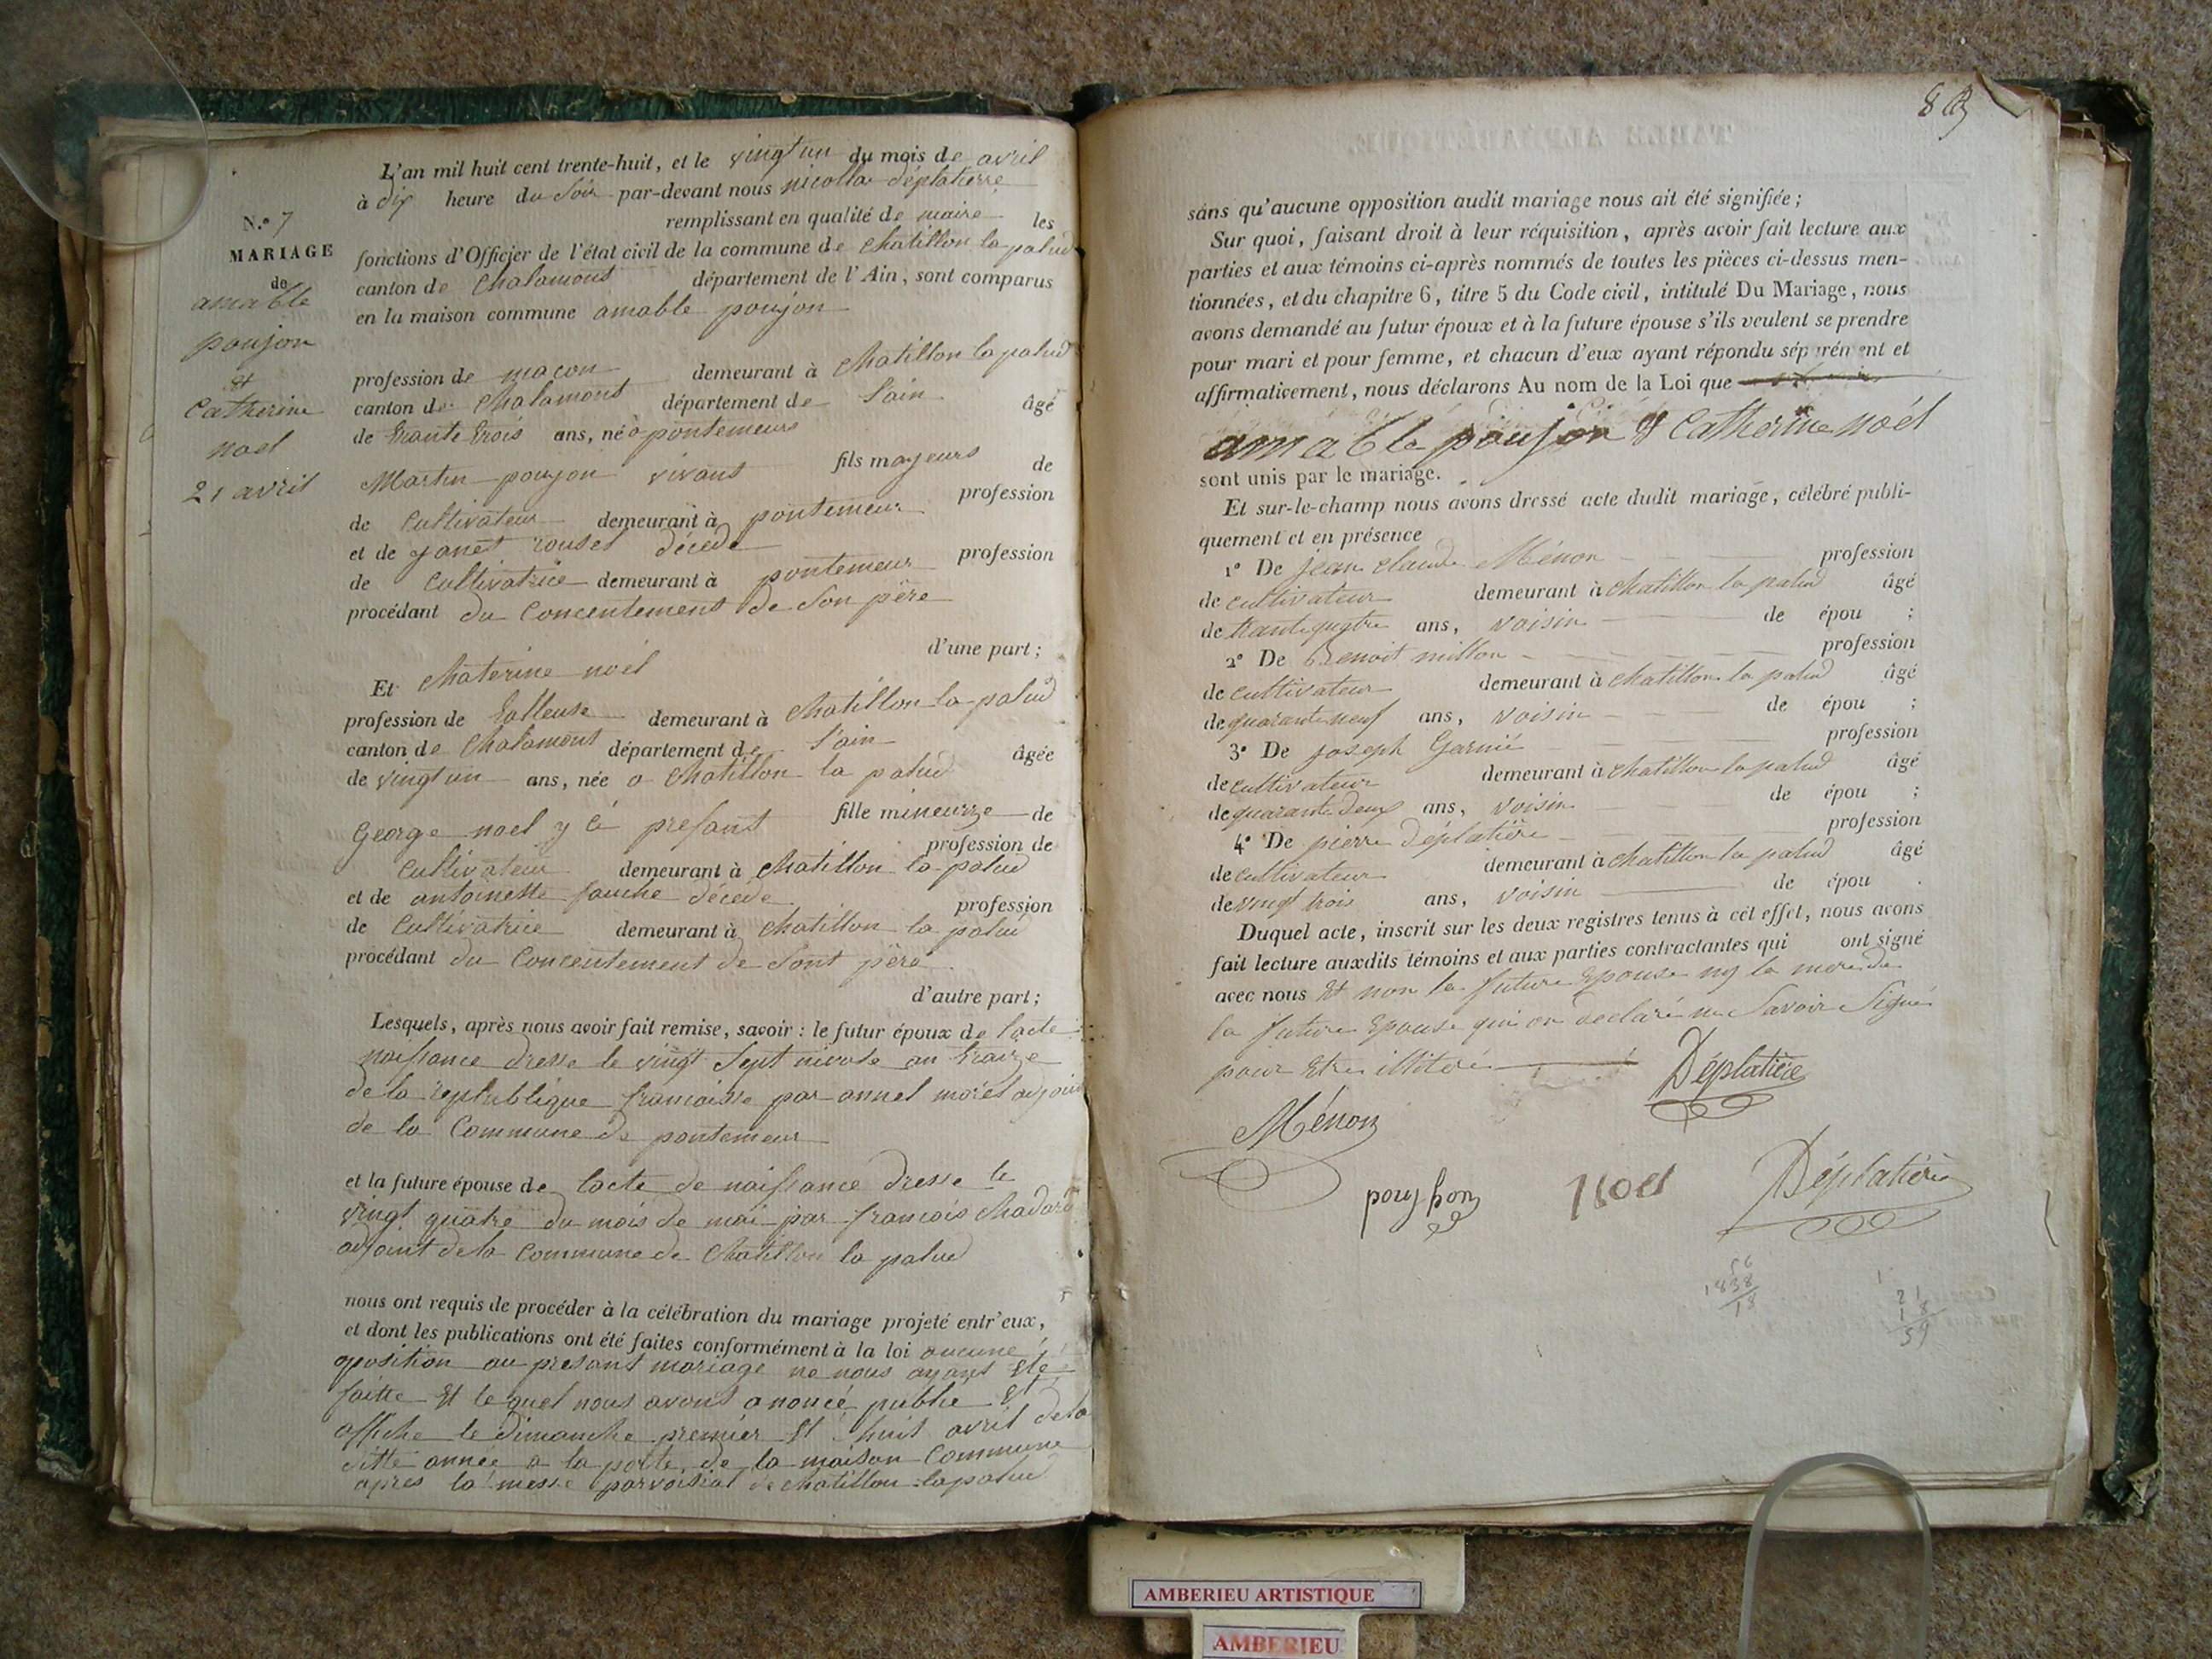 L'an mil huit cent trente-huit, et le vingt un du mois de avril
à dix heure du soir par-devant nous nicollas déplatierre
remplissant en qualité de maire les
N.º 7
MARIAGE
de
amable
poujon
et
Catherine
noel
21 avril
fonctions d'Officier de l'état civil de la commune de chatillon la palud
canton de Chalamont département de l'Ain, sont comparus
en la maison commune amable poujon
profession de macon demeurant à chatillon la palud
canton de Chalamont département de l'ain âgé
de trante trois ans, né à pontemeur
Martin poujon vivant fils majeurs de
profession
de Cultivateur demeurant à pontemeur
et de janet rouset décédé
profession
de Cultivatrice demeurant à pontemeur
procédant du Concentement de Son père
d'une part;
Et Chaterine noël
profession de talleuse demeurant à Chatillon la palud
canton de Chalamont département de l'ain
âgée
de vingt un ans, née a Chatillon la palud
George noel y ci presant fille mineurre de
profession de
Cultivateur demeurant à Chatillon la palud
et de antoinette fauche décédé
profession
de Cultivatrice demeurant à Chatillon la palud
procédant du Concentement de Sont père
d'autre part;
Lesquels, après nous avoir fait remise, savoir: le futur époux de l'acte
naissance dresse le vingt Sept nivose an traize
de la republique francaisse par annel morel adjoint
de la Commune de pontemeur
et la future épouse de lacte de naissance dresse le
vingt quatre du mois de mai par francois Chadard
adjoint de la Commune de Chatillon la palud
nous ont requis de procéder à la célébration du mariage projeté entr'eux,
et dont les publications ont été faites conformément à la loi aucune
oposition au presant mariage ne nous ayant été
faitte Et le quel nous avons anoncé publié Et
affiche le dimanche premier Et huit avril de la
ditte année a la porte de la maison Commune
apres la messe parvoisial de chatillon la palud
8
TABLE ALPHABÉTIQUE
sans qu'aucune opposition audit mariage nous ait été signifiée;
Sur quoi, faisant droit à leur réquisition, après avoir fait lecture aux
parties et aux témoins ci-après nommés de toutes les pièces ci-dessus men-
tionnées, et du chapitre 6, titre 5 du Code civil, intitulé Du Mariage, nous
avons demandé au futur époux et à la future épouse s'ils veulent se prendre
pour mari et pour femme, et chacun d'eux ayant répondu séparément et
affirmativement, nous déclarons Au nom de la Loi que
amable poujon & Catherine noél
sont unis par le mariage.
Et sur-le-champ nous avons dressé acte dudit mariage, célébré publi-
quement et en présence
1º De jean claude Ménon profession
de cultivateur demeurant à chatillon la palud âgé
de trante quatre ans, voisin de épou ;
2º De Benoit millon profession
de cultivateur demeurant à chatillon la palud âgé
de quarante neuf ans, voisin de épou ;
3º De joseph Garnié profession
de cultivateur demeurant à chatillon la palud âgé
de quarante deux ans, voisin de épou ;
4º De pierre déplatière profession
de cultivateur demeurant à chatillon la palud âgé
de vingt trois ans, voisin de épou .
Duquel acte, inscrit sur les deux registres tenus à cet effet, nous avons
fait lecture auxdits témoins et aux parties contractantes qui ont signé
avec nous Et non la future Epouse ny la mere de
la future Epouse qui on declaré ne Savoir Signé
pour Etre illiteré
Déplatière
Ménon
poujhon
Noel
Déplatière
56
1838
18
21
18
39
AMBERIEU ARTISTIQUE
AMBERIEU